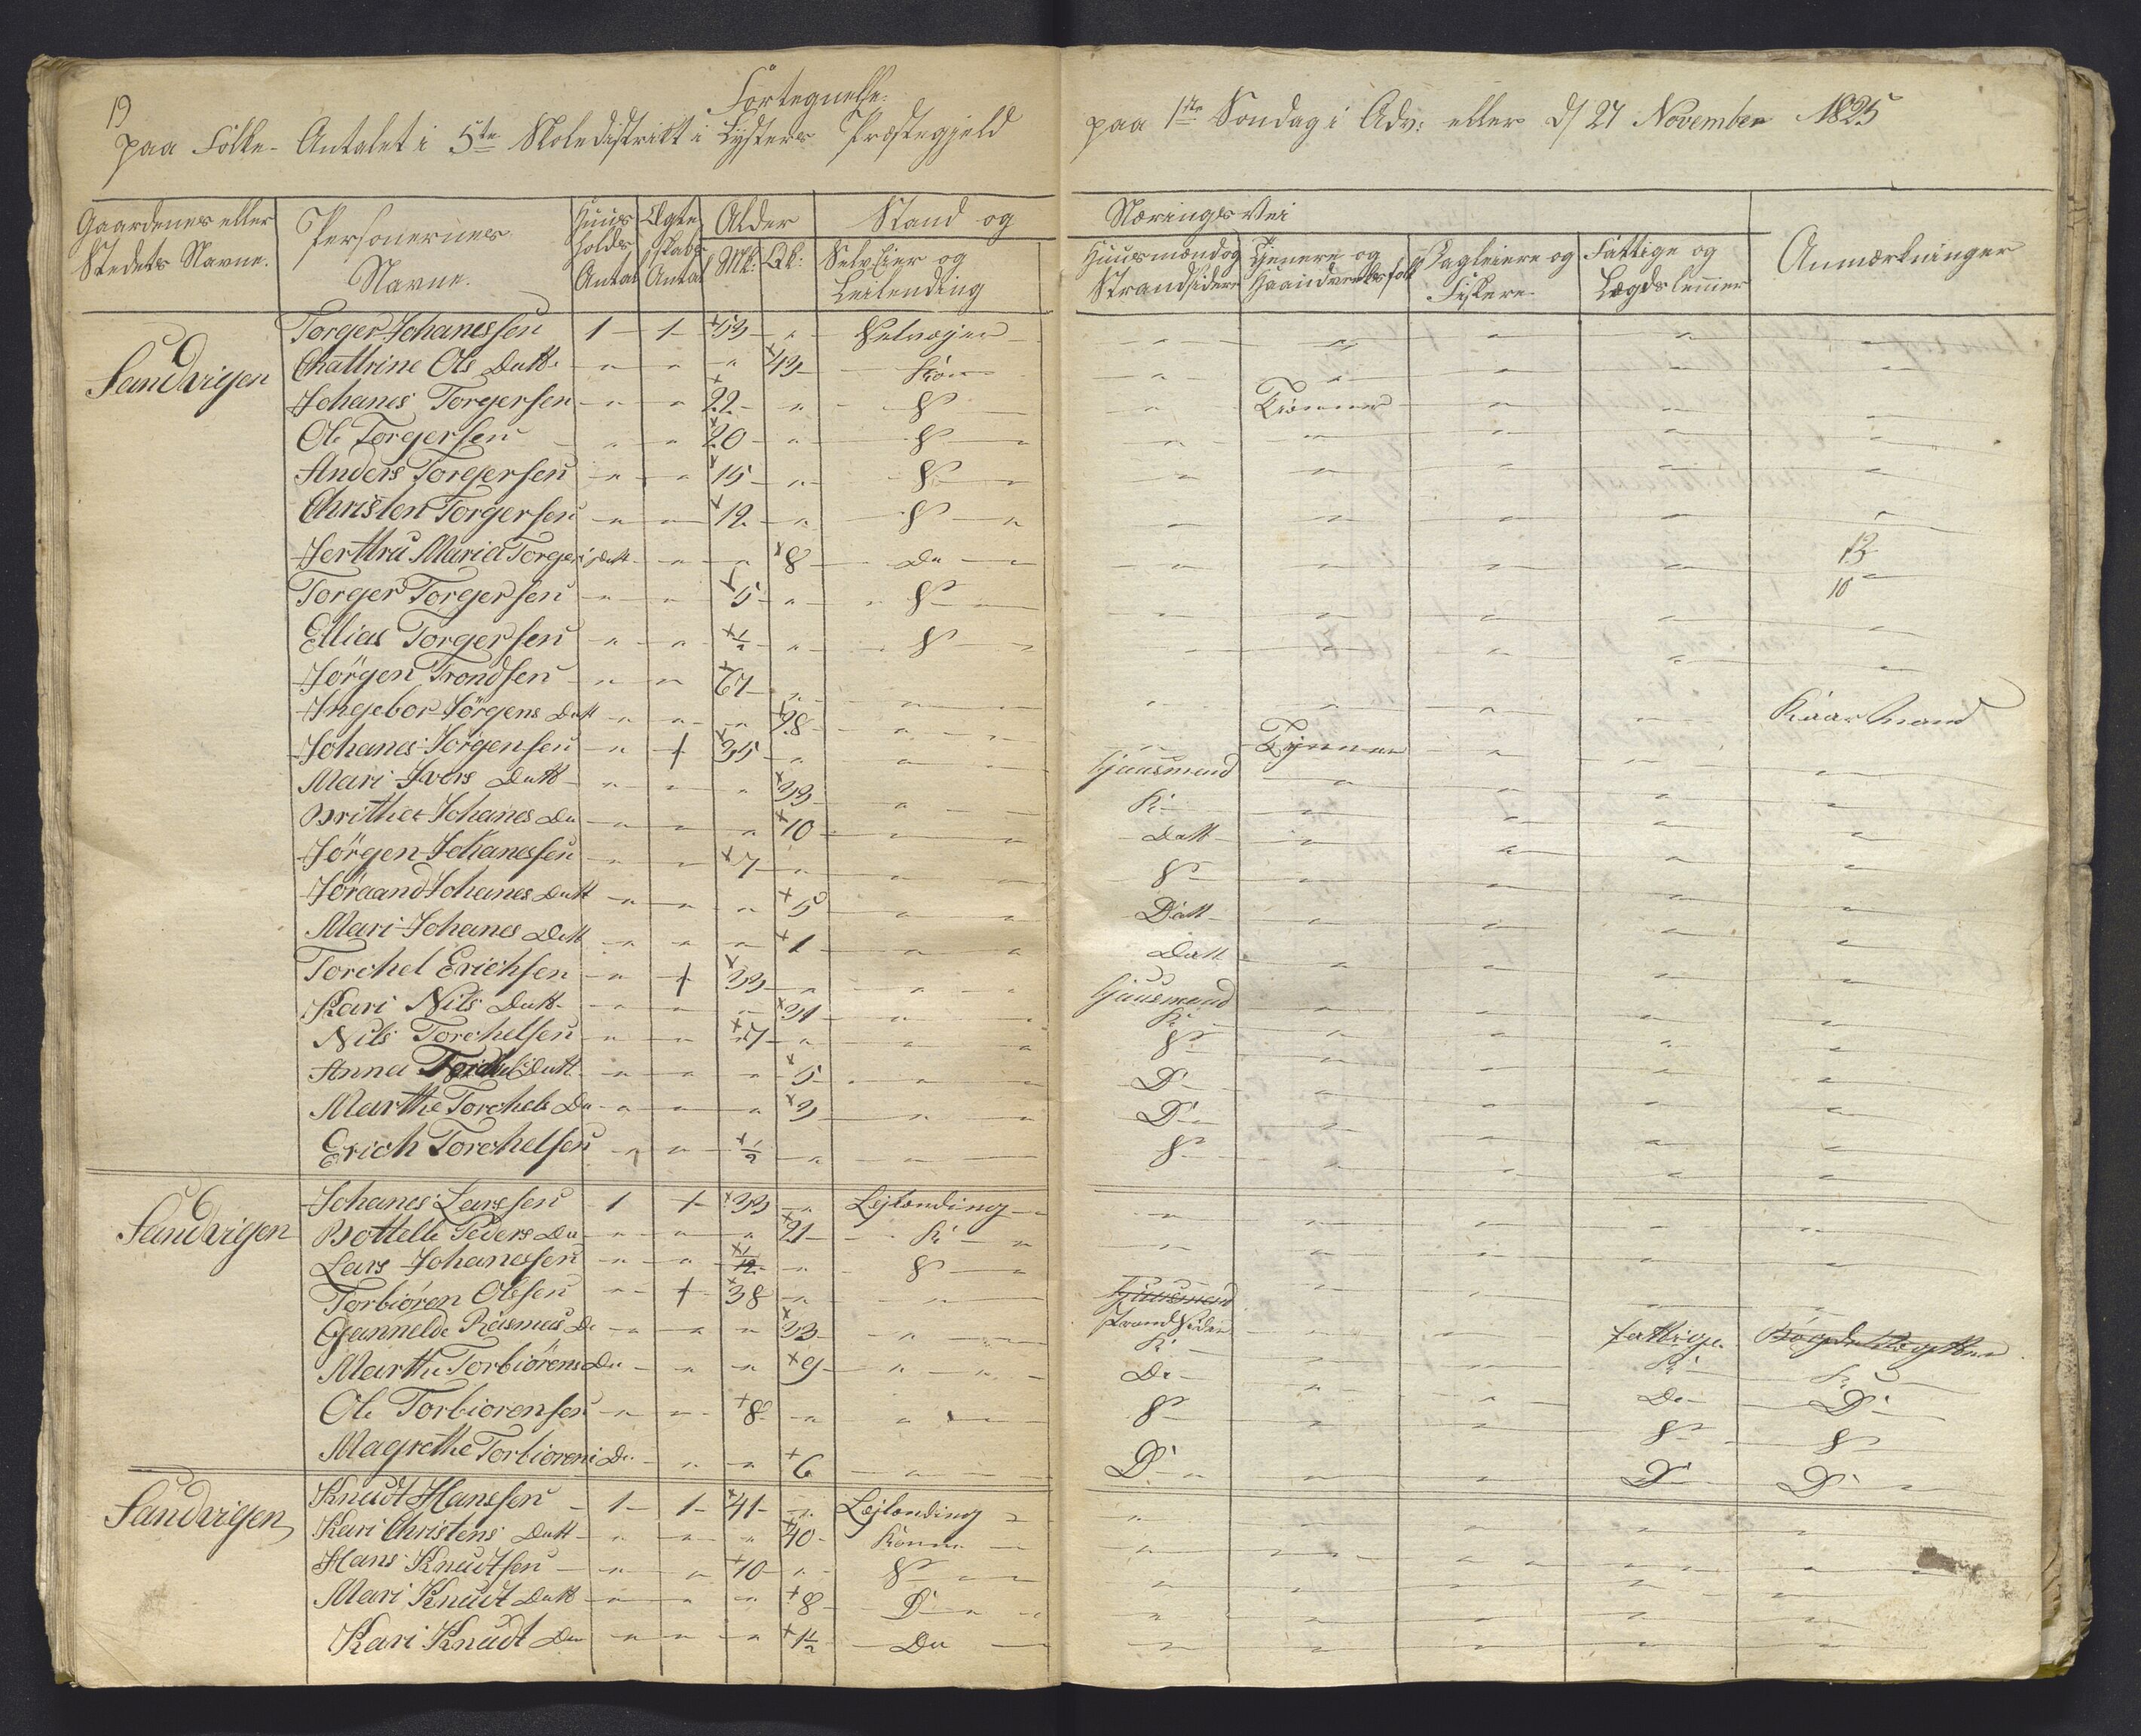 19
Fortegnelse
paa Folke-Antalet i 5te Skoledistrikt i Lysters Præstegjeld
paa 1ste Søndag i Adv: eller d/ 27 November 1825
Gaardenes eller Stedets Navne. Personernes Navne. Huus holds Antal Ægte skabs Antal Alder Mk: Qk: Stand og Selv Eier og Leilending
Nærings Vei Huusmend og Strandsidere Tjenere og Haandverksfolk Dagleiere og Fiskere Fattige og Lægdslemer Anmærkninger
Sandvigen Torger Johanessen 1 1 53 " Selvejer
Chattrine Ols Datt. " " " 43 Kone
Johanes Torgersen " " 22 " S
Ole Torgersen " " 20 " S
Anders Torgersen " " 15 " S
Christen Torgersen " " 12 " S
Jerttru Maria Torgers Datt " " " 8 Da 13
Torger Torgersen " " 5 " S 10
Ellias Torgersen " " 1/2 " S
Jörgen Trondsen " " 67 " Kaarmand
Ingebor Jörgens Datt " " " 28
Johanes Jörgensen " 1 35 " Huusmand
Mari Ivers Datt " " " 33 K
Brithe Johanes Da " " " 10 Datt
Jörgen Johanessen " " 7 " S
Jöraand Johanes Datt " " " 5 Datt
Mari Johanes Datt " " " 1 Datt
Torchel Erichsen " 1 33 " Huusmand
Kari Nils Datt " " " 31 K
Nils Torchelsen " " 7 " S
Anna Torchels Datt " " " 5 D
Marthe Torchels Da " " " 3 D
Erich Torchelsen " " 1/2 " S
Sandvigen Johanes Larssen 1 1 33 " Lejlending
Bottelle Peders Da " " " 21 K
Lars Johanessen " " 1/12 " S
Torbiören Olssen " 1 38 " Huusmand Strandsider fattige
Gunnelde Rasmus Da " " " 33 K K K
Marthe Torbiörens Da " " " 9 D D D
Ole Torbiorensen " " 8 " S S S
Magrethe Torbiorens Da " " " 6 D D D
Sandvigen Knudt Hanssen 1 1 41 " Lejlending
Kari Christens Datt " " " 40 Konne
Hans Knudtsen " " 10 " S
Mari Knudt Datt " " " 8 D
Kari Knudt Da " " " 1 1/2 Da